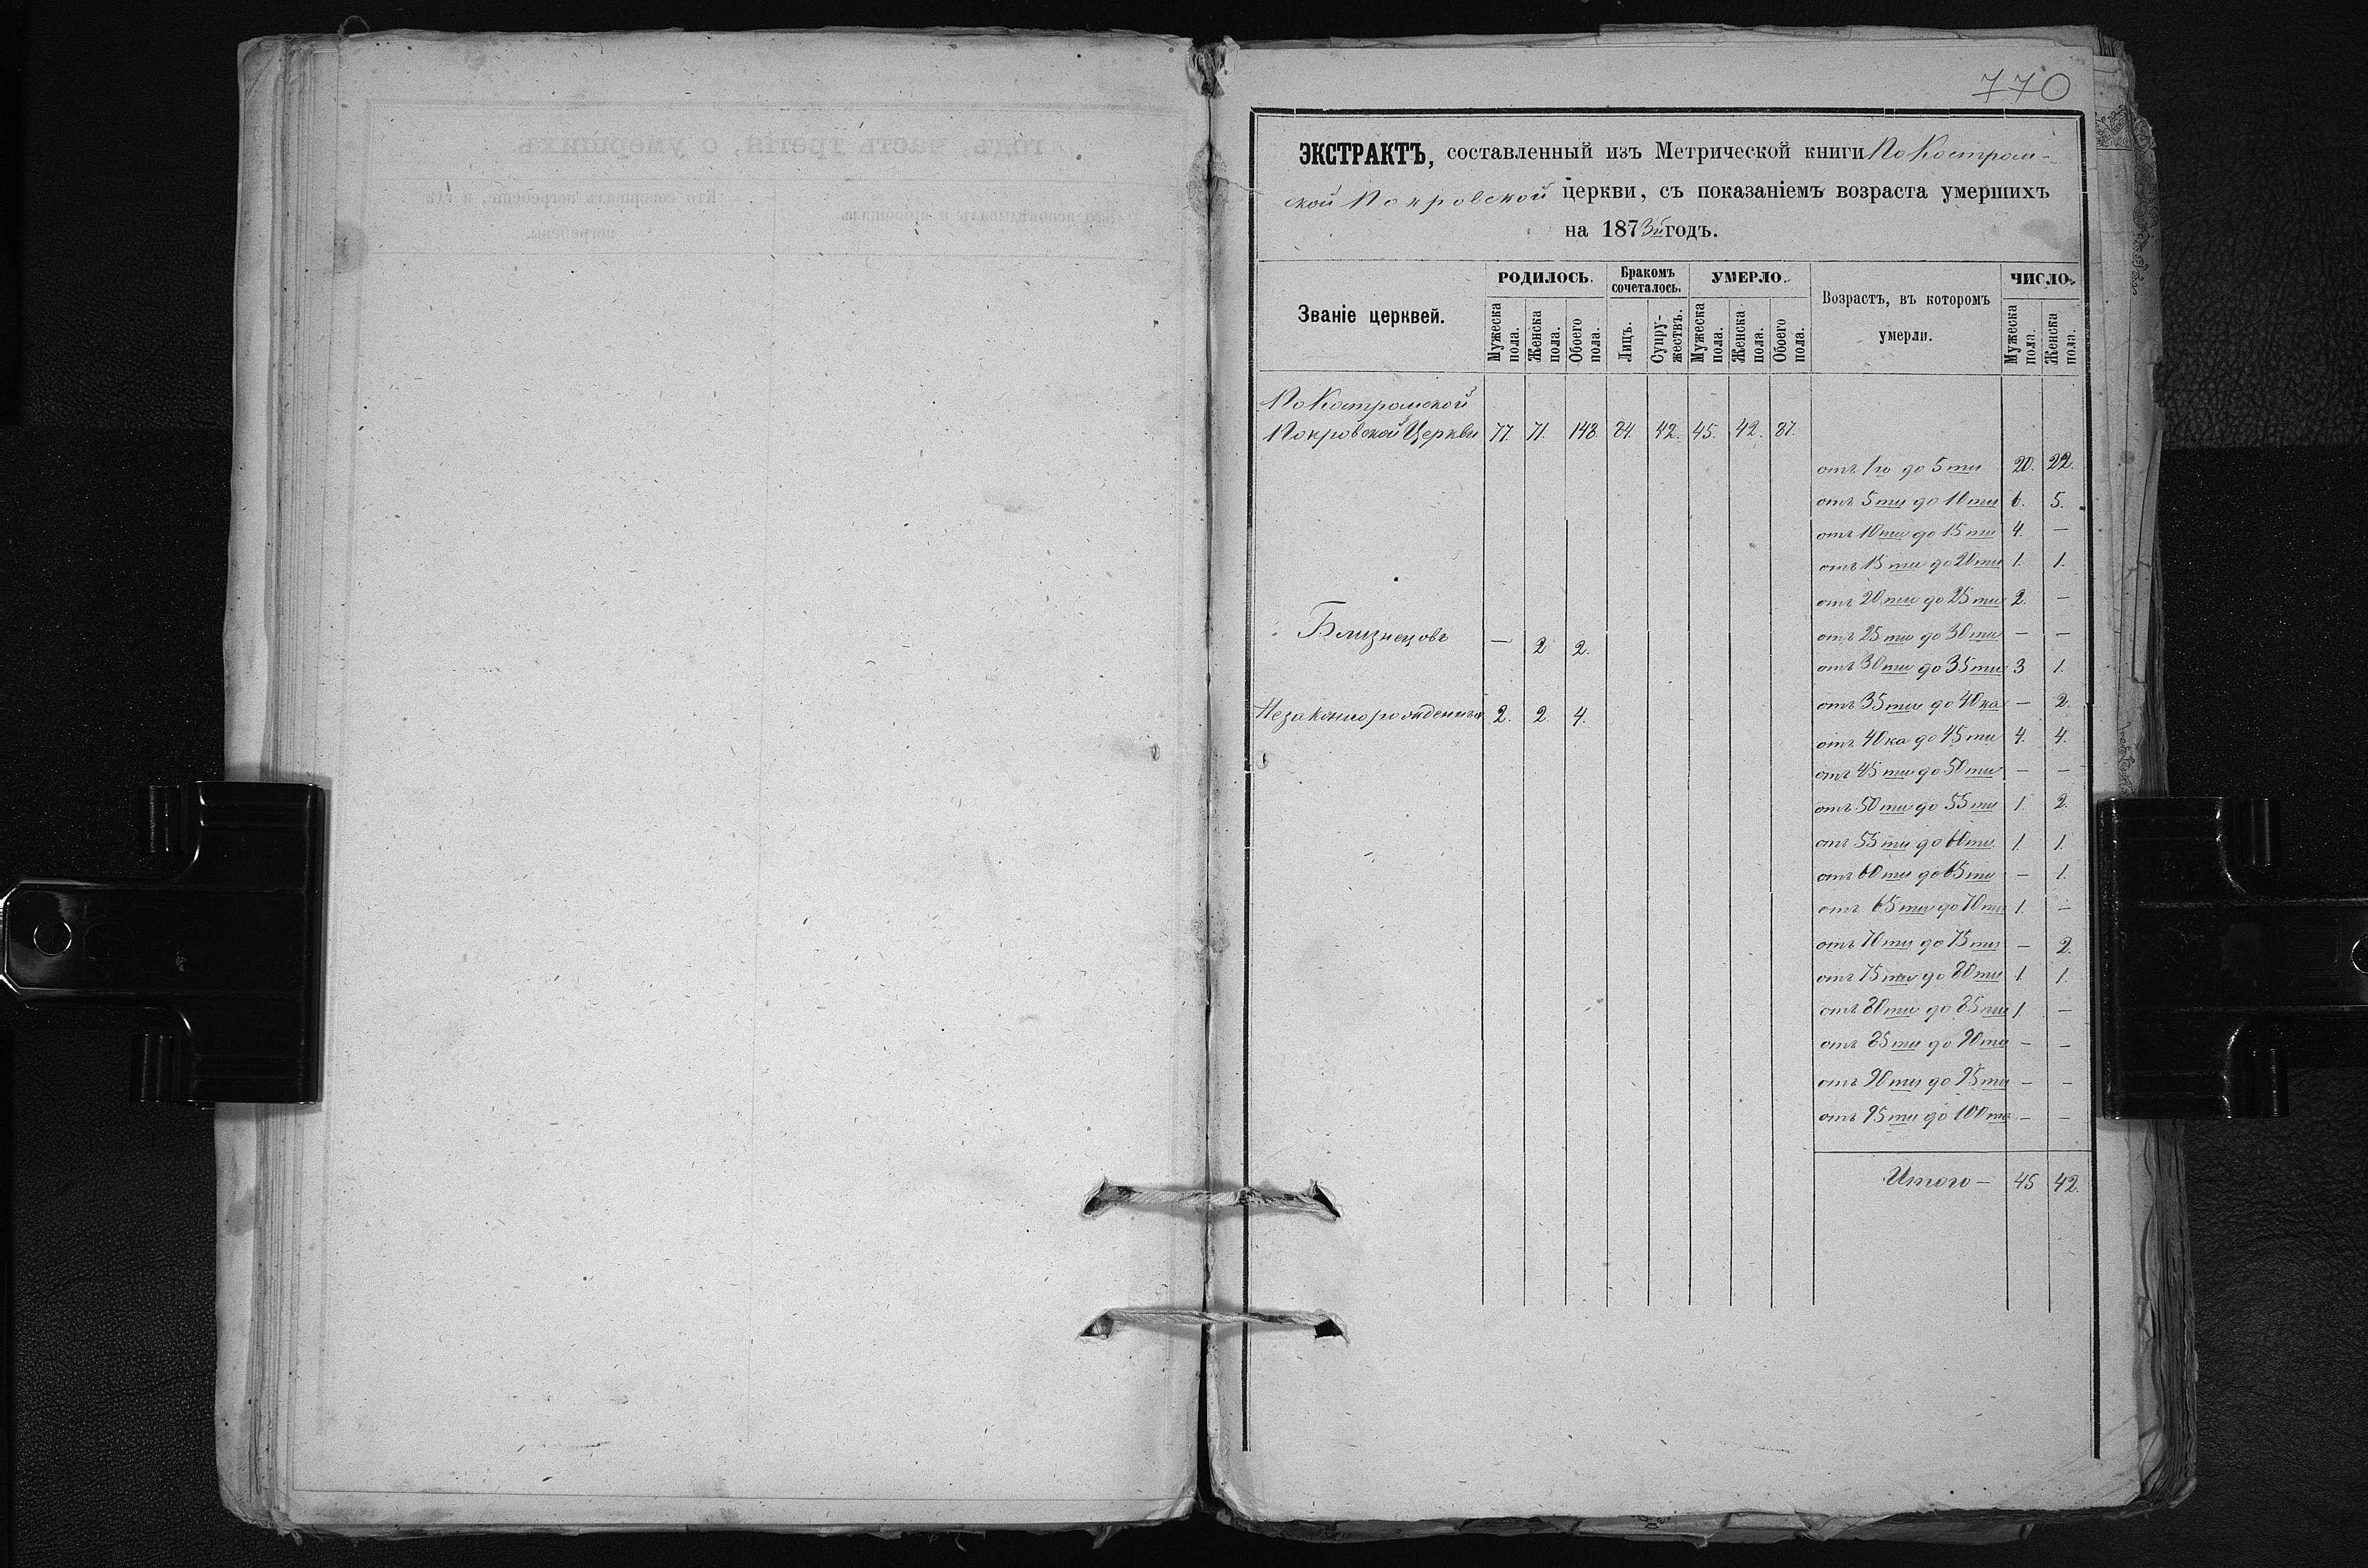 770
ЭКСТРАКТЪ, составленный изъ Метрической книги По Костром-
ской Покровской церкви, съ показаніемъ возраста умершихъ
на 1873й годъ.
Званіе церквей.
РОДИЛОСЬ.
Мужеска пола.
Женска пола.
Обоего пола.
Бракомъ сочеталось.
Лицъ.
Супру-жествъ.
УМЕРЛО.
Мужеска пола.
Женска пола.
Обоего пола.
Возрастъ, въ котором
умерли.
ЧИСЛО.
Мужеска пола.
Женска пола.
По Костромской
Покровской Церкви 77. 71. 148. 84. 42. 45. 42. 87.
отъ 1го до 5ти 20. 22.
отъ 5ти до 10ти 6. 5.
отъ 10ти до 15ти 4. —
отъ 15ти до 20ти 1. 1.
отъ 20ти до 25ти 2. —
Близнецовъ — 2 2.
отъ 25ти до 30ти — —
отъ 30ти до 35ти 3 1.
Незаконнорожденныхъ 2. 2 4.
отъ 35ти до 40ка — 2.
отъ 40ка до 45ти 4. 4.
отъ 45ти до 50ти — —
отъ 50ти до 55ти 1. 2.
отъ 55ти до 60ти 1. 1.
отъ 60ти до 65ти — 1.
отъ 65ти до 70ти 1. —
отъ 70ти до 75ти — 2.
отъ 75ти до 80ти 1. 1.
отъ 80ти до 85ти 1. —
отъ 85ти до 90ти — —
отъ 90ти до 95ти — —
отъ 95ти до 100та — —
Итого — 45 42.